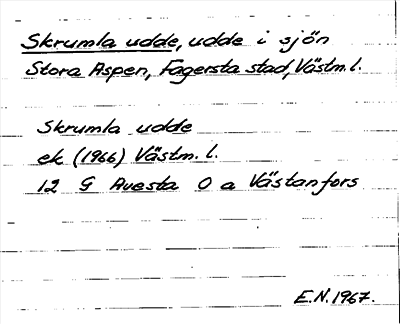 Skrumla udde, udde i sjön
Stora Aspen, Fagersta stad, Västm.l.
Skrumla udde
ek (1966) Västm.l.
12 G Avesta O a Västanfors
E.N. 1967.